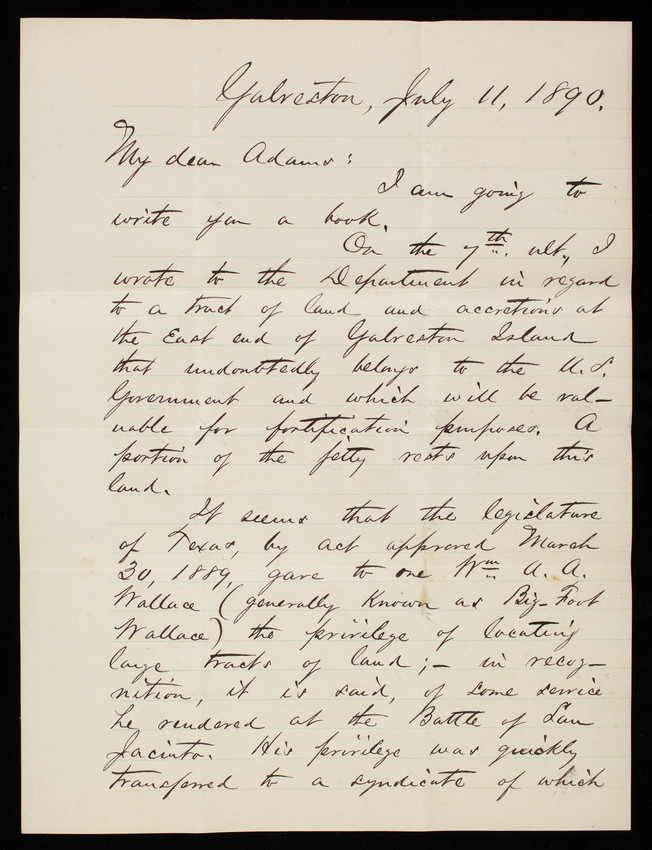 Galveston, July 11, 1890.
My dear Adams:
I am going to
write you a book.
On the 7th. ult., I
wrote to the Department in regard
to a tract of land and accretions at
the East end of Galveston Island
that undoubtedly belongs to the U.S.
Government and which will be val-
uable for fortification purposes. A
portion of the jetty rests upon this
land.
It seems that the legislature
of Texas, by act approved March
30, 1889, gave to one Wm A. A.
Wallace (generally known as Big-Foot
Wallace) the privilege of locating
large tracts of land;- in recog-
nition, it is said, of some service
he rendered at the Battle of San
Jacinto. His privilege was quickly
transferred to a syndicate of which